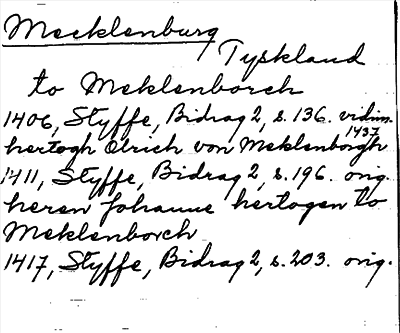 Mecklenburg
Tyskland
to Meklenborch
1406, Styffe, Bidrag 2, s. 136. vidim. 1437
hertogh Olrich von Meklenborgh
1411, Styffe, Bidrag 2, s. 196. orig.
heren Johanne hertogen to
Meklenborch
1417, Styffe, Bidrag 2, s. 203. orig.